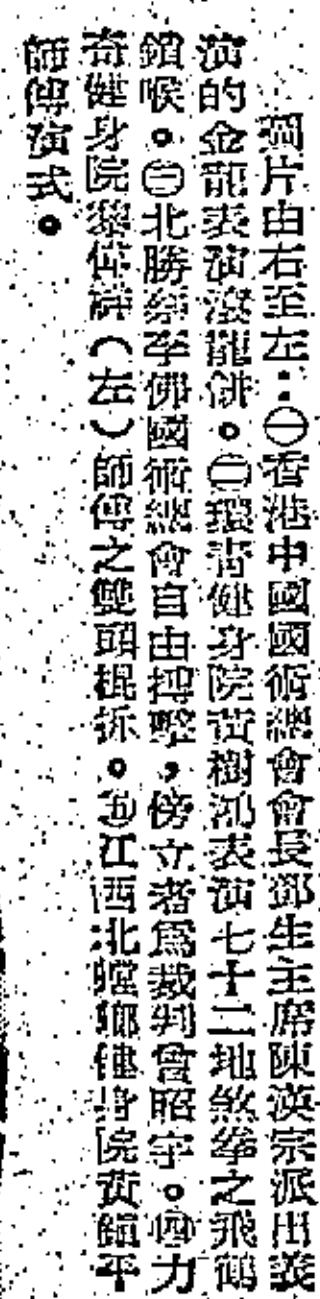 圖片由右至左：㊀香港中國國術總會會長鄧生主席陳漢宗派出義
演的金龍表演滾龍餅。㊁環青健身院黃樹鴻表演七十二地煞拳之飛鶴
鎖喉。㊂北勝蔡李佛國術總會自由搏擊，傍立者爲裁判曾昭宇。㊃力
奇健身院黎偉（左）師傅之雙頭棍拆。㊄江西北螳螂健身院黃錦平
師傅演式。